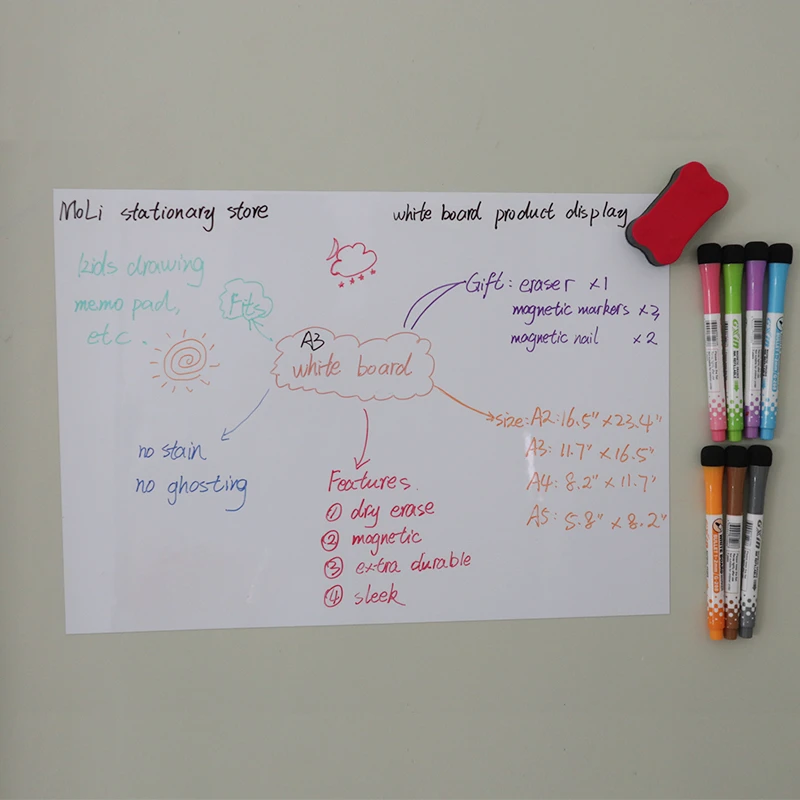 MoLi stationary store
white board product display
kids drawing
memo pad,
etc.
Fits
Gift: eraser x1
magnetic markers x3,
magnetic nail x2
A3
white board
no stain
no ghosting
size: A2: 16.5" x 23.4"
A3: 11.7" x 16.5"
A4: 8.2" x 11.7"
A5: 5.8" x 8.2"
Features.
① dry erase
② magnetic
③ extra durable
④ sleek